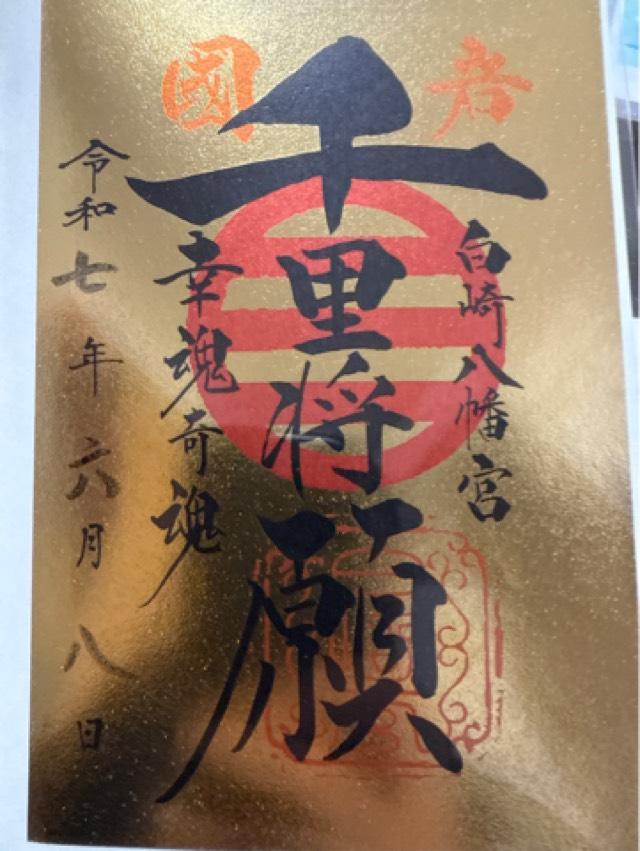 岩國
白崎八幡宮
千里将願
幸魂奇魂
令和七年六月八日